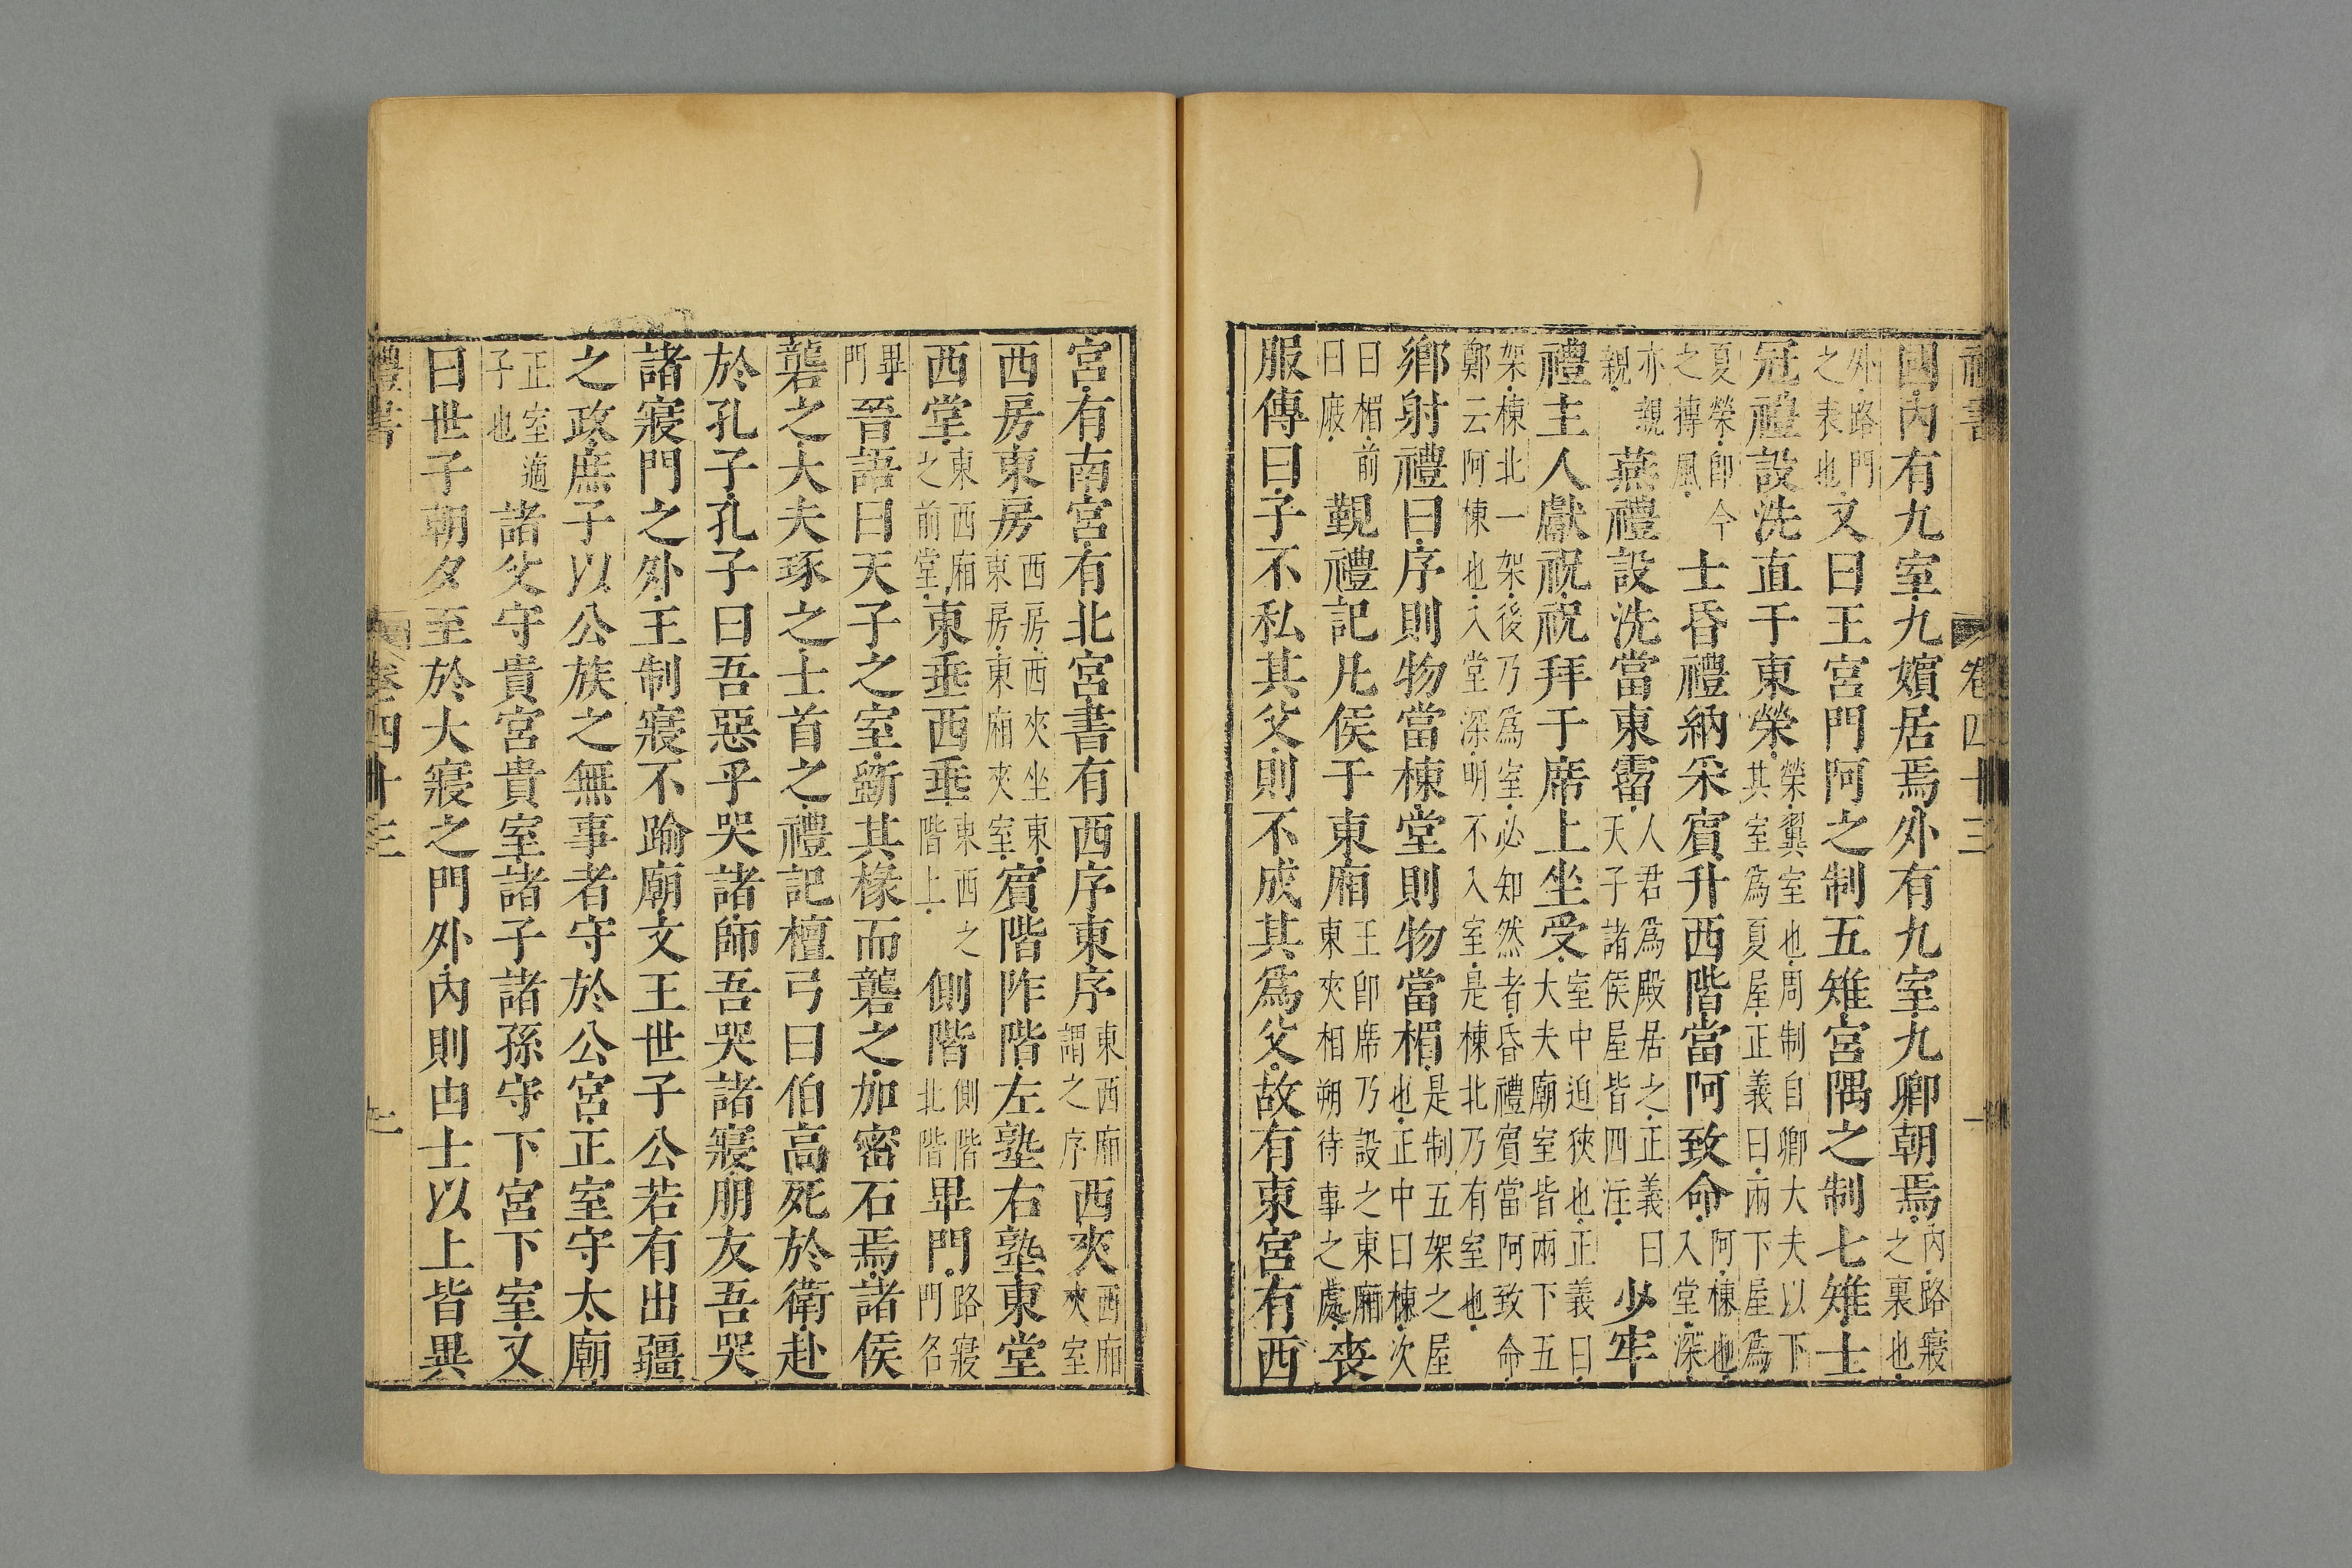 禮書 卷四十三 一
國內有九室九嬪居焉外有九室九卿朝焉內路寢之裏也
外路門之表也又曰王宮門阿之制五雉宮隅之制七雉士
冠禮設洗直于東榮榮翼室也周制自卿大夫以下其室爲夏屋正義曰兩下屋爲
夏榮即今之摶風士昏禮納采賓升西階當阿致命阿棟也入堂深
亦親親燕禮設洗當東霤人君爲殿居之正義曰天子諸侯屋皆四注少牢
禮主人獻祝祝拜于席上坐受室中迫狹也正義曰大夫廟室皆兩下五
架棟北一架後乃爲室必知然者昏禮賓當阿致命鄭云阿棟也入堂深明不入室是棟北乃有室也
鄉射禮曰序則物當棟堂則物當楣是制五架之屋也正中曰棟次
曰楣前曰庪覲禮記凡俟于東廂王即席乃設之東廂東夾相翔待事之處喪
服傳曰子不私其父則不成其爲父故有東宮有西
宮有南宮有北宮書有西序東序東西廂謂之序西夾西廂夾室
西房東房西房西夾坐東東房東廂夾室賓階阼階左塾右塾東堂
西堂東西廂之前堂東垂西垂東西之階上側階側階北階畢門路寢門名
畢門晉語曰天子之室斵其椽而礱之加密石焉諸侯
礱之大夫琢之士首之禮記檀弓曰伯高死於衛赴
於孔子孔子曰吾惡乎哭諸師吾哭諸寢朋友吾哭
諸寢門之外王制寢不踰廟文王世子公若有出疆
之政庶子以公族之無事者守於公宮正室守太廟
正室適子也諸父守貴宮貴室諸子諸孫守下宮下室又
曰世子朝夕至於大寢之門外內則由士以上皆異
禮書 卷四十三